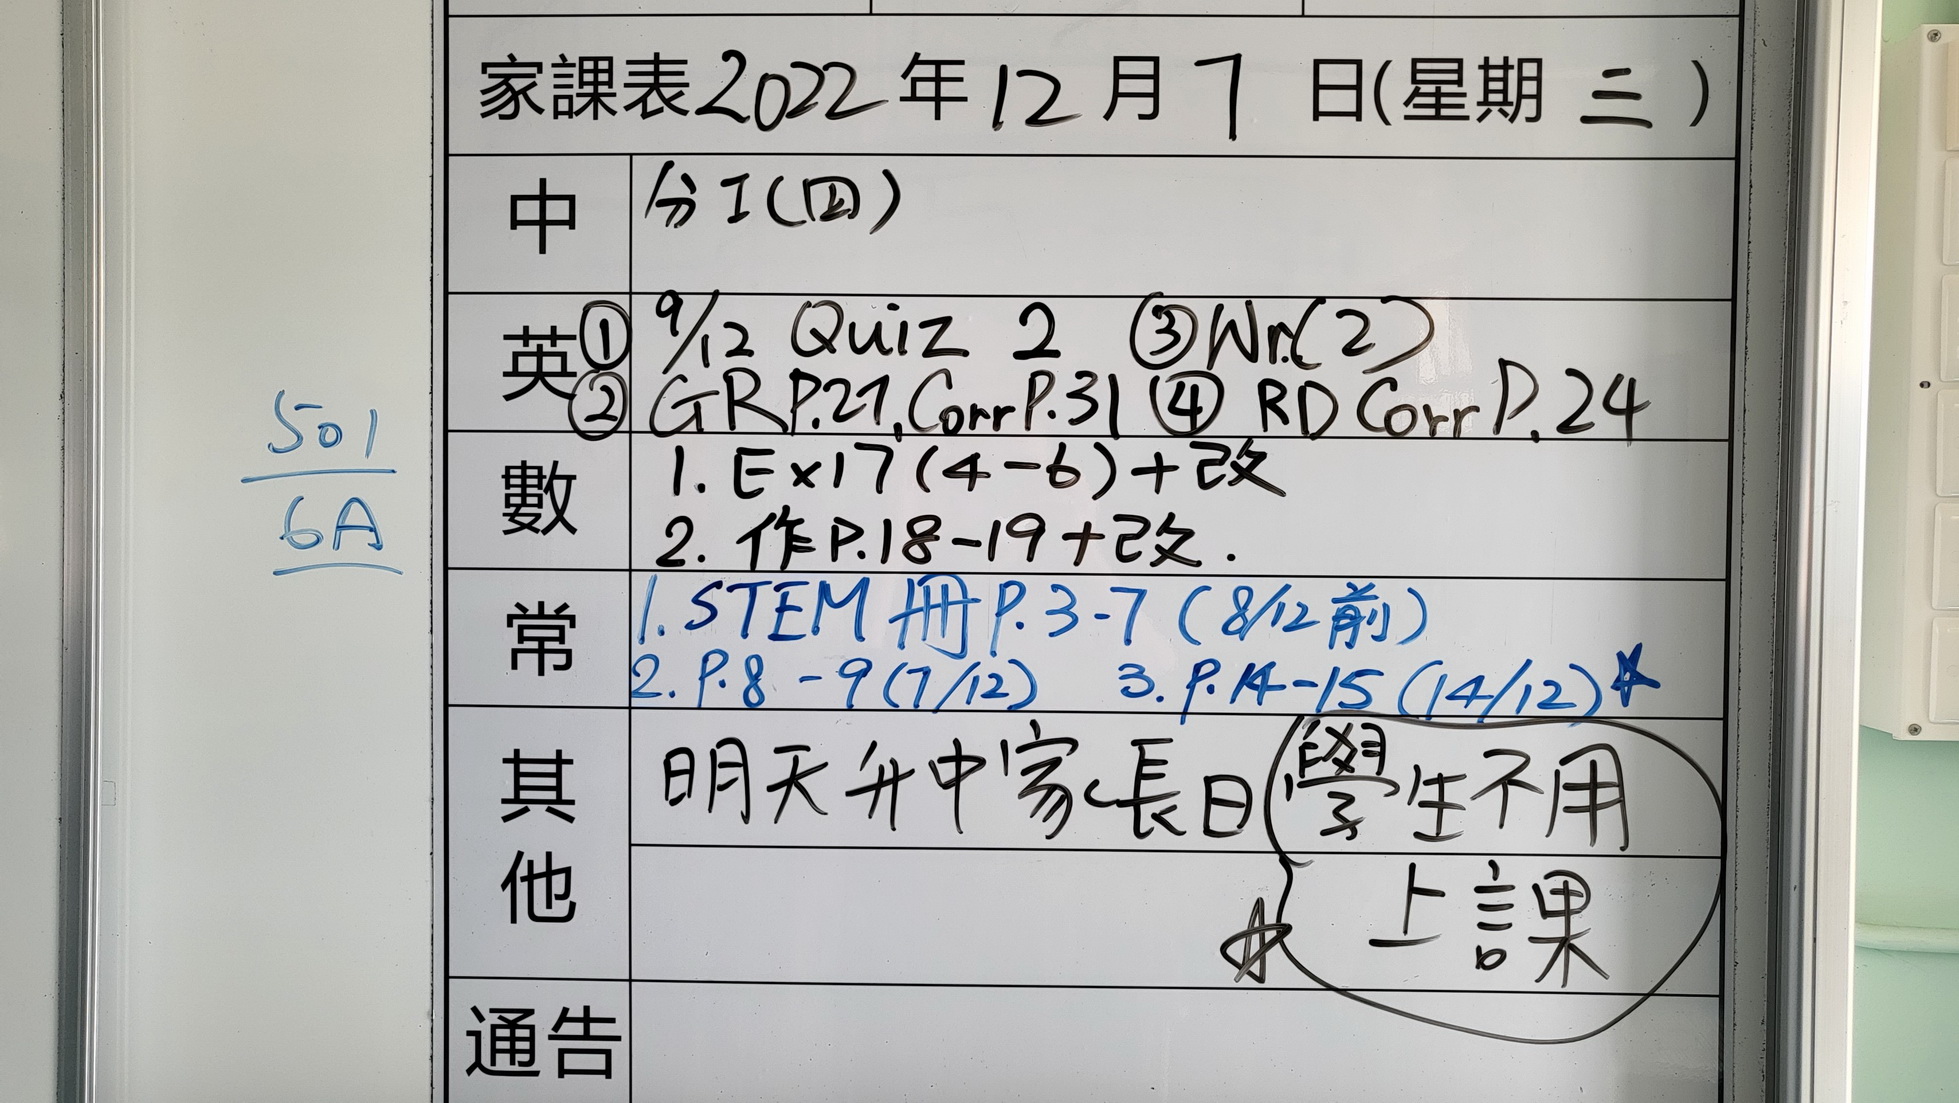 家課表2022年12月7日(星期三)
中 分工(四)
英 ① 9/12 Quiz 2 ③ Wr.(2)
② GR P.27, Corr P.31 ④ RD Corr P.24
數 1. Ex17(4-6)+改
2. 作P.18-19+改.
501
6A
常 1. STEM 冊 P.3-7 (8/12前)
2. P.8-9(7/12) 3. P.14-15(14/12)
其他 明天升中家長日(學生不用
上課
通告